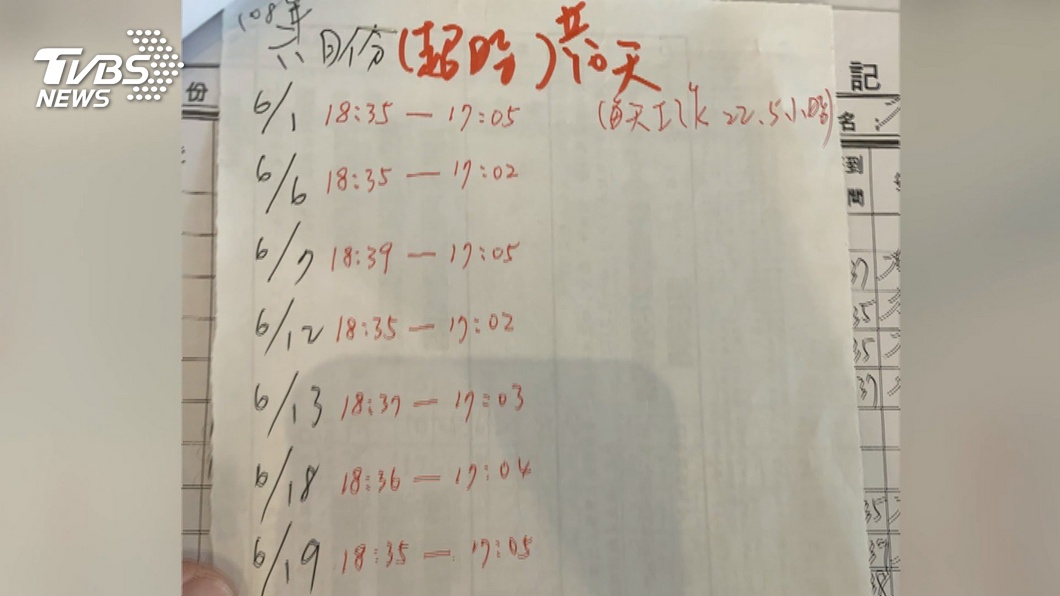 TVBS
NEWS
108年
六月份(超時)共10天
(每天工作22.5小時)
6/1 18:35 — 17:05
6/6 18:35 — 17:02
6/7 18:39 — 17:05
6/12 18:35 — 17:02
6/13 18:37 — 17:03
6/18 18:36 — 17:04
6/19 18:35 — 17:05
份
記
名:
到
間
37
35
35
37
35
37
38